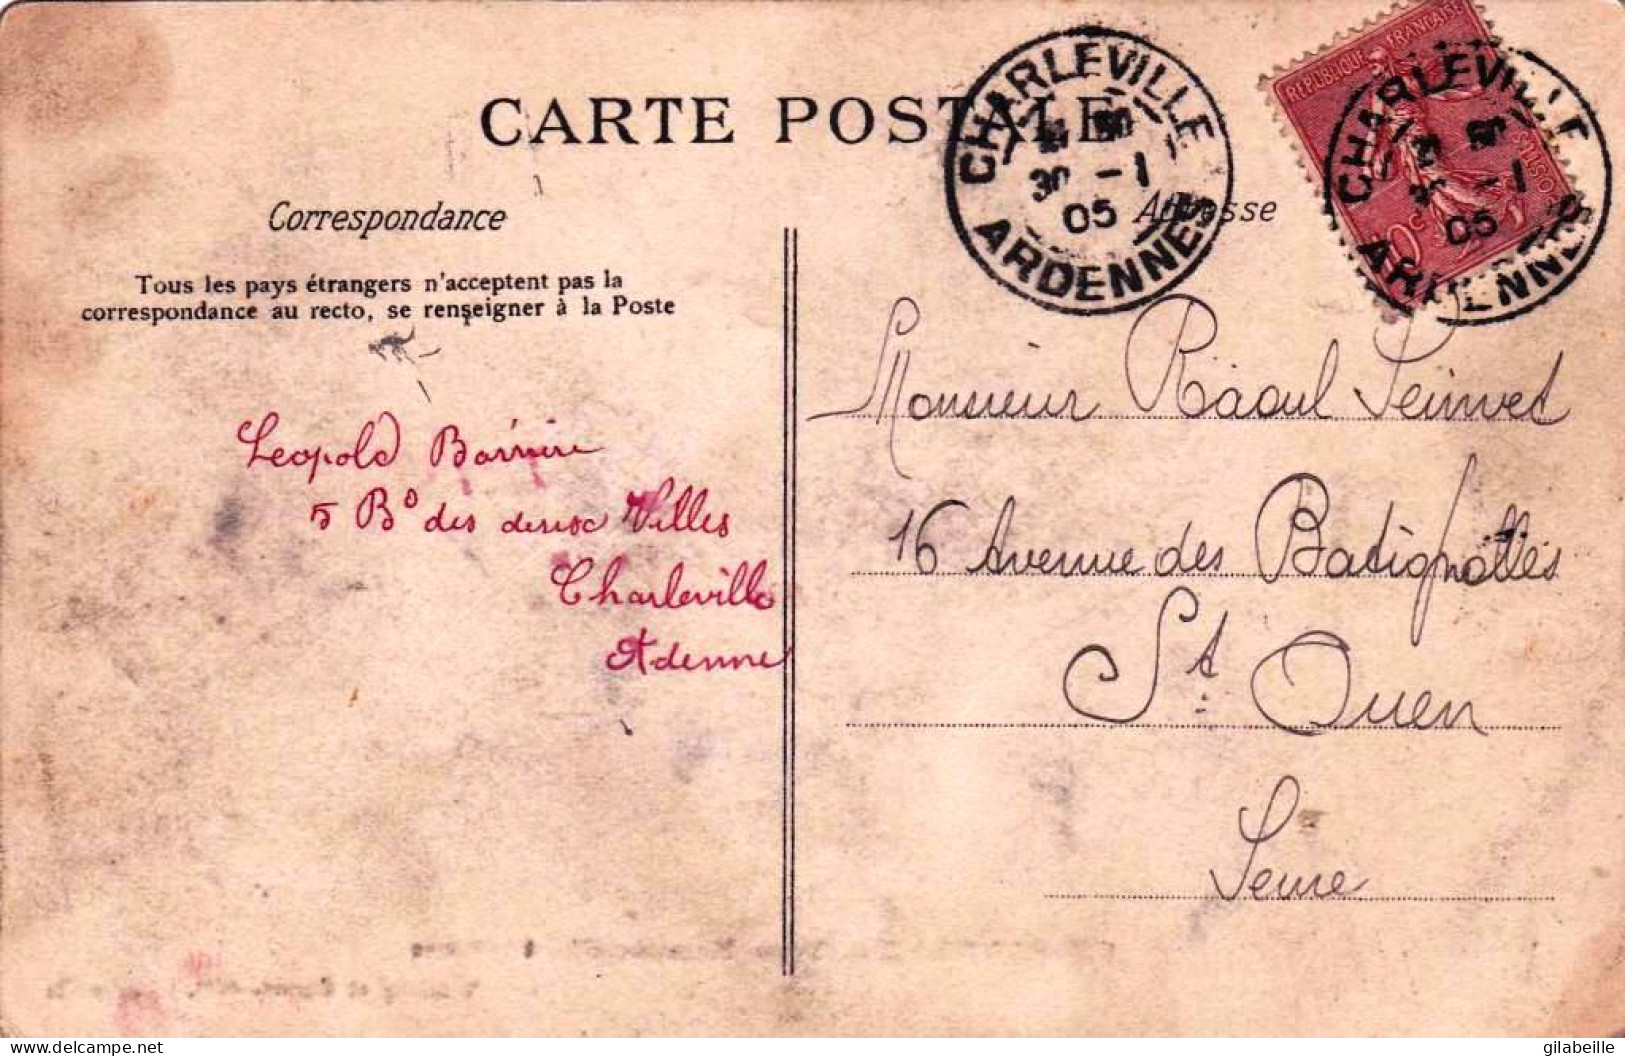 CARTE POSTALE
Correspondance
Tous les pays étrangers n'acceptent pas la
correspondance au recto, se renseigner à la Poste
Adresse
CHARLEVILLE
30 - 1
05
ARDENNES
REPUBLIQUE FRANÇAISE
CHARLEVILLE
05
ARDENNES
Leopold Barrière
5 Bd des Villes
Charleville
Monsieur Raoul
16 Avenue des Batignolles
St Ouen
Seine
gilabeille